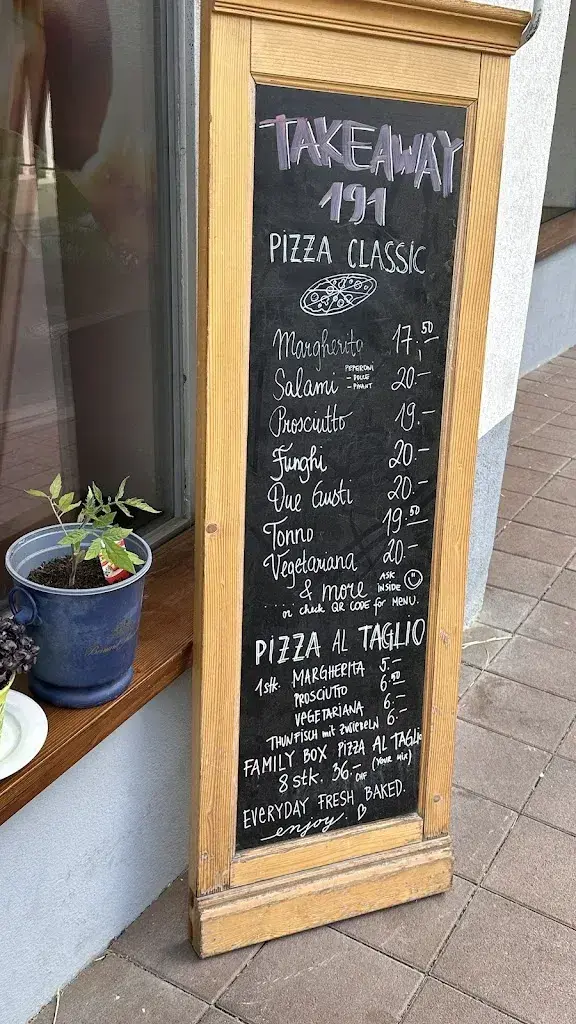 TAKEAWAY
191
PIZZA CLASSIC
Margherita 17.50
Salami PEPERONI - DOLCE - PIKANT 20.-
Prosciutto 19.-
Funghi 20.-
Due Gusti 20.-
Tonno 19.50
Vegetariana 20.-
& more ASK INSIDE
.... or check QR CODE for MENU.
PIZZA AL TAGLIO
1stk. MARGHERITA 5.-
PROSCIUTTO 6.50
VEGETARIANA 6.-
THUNFISCH mit ZWIEBELN 6.-
FAMILY BOX PIZZA AL TAGLIO
8 stk. 36.- CHF (YOUR MIX)
EVERYDAY FRESH BAKED.
enjoy.